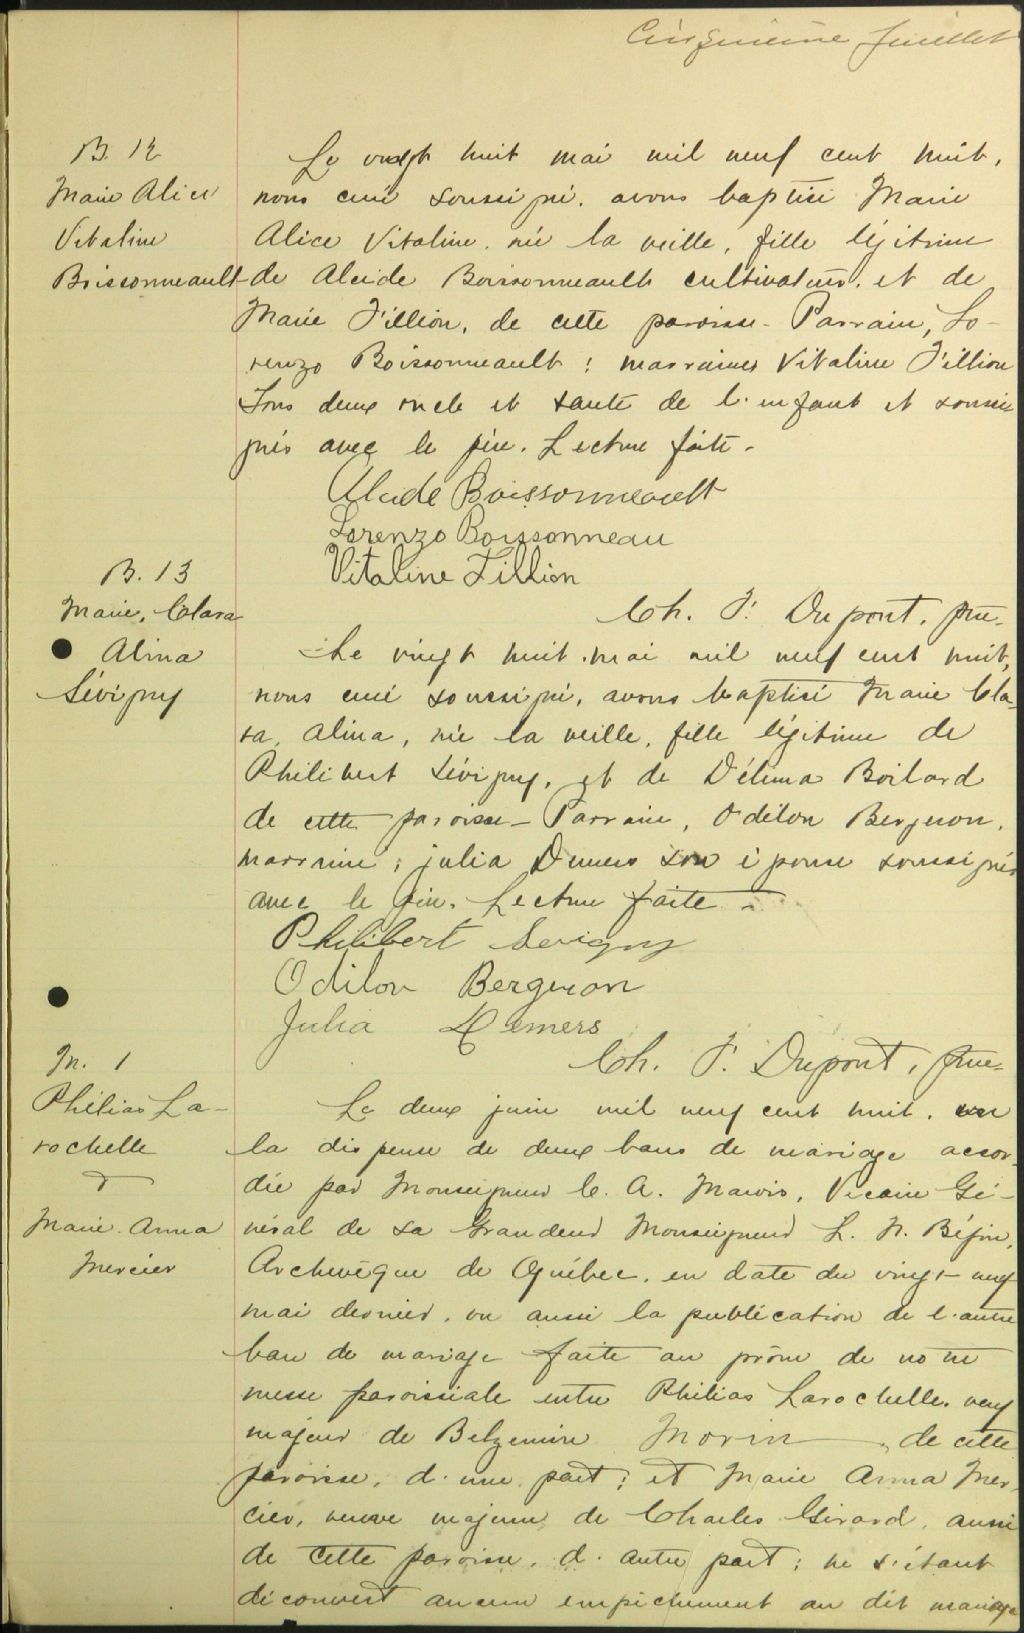 Cinquième feuillet
B. 12
Marie Alice
Vitaline
Boissonneault
Le vingt huit mai mil neuf cent huit,
nous curé soussigné, avons baptisé Marie
Alice Vitaline, née la veille, fille légitime
de Alcide Boissonneault cultivateur, et de
Marie Fillion, de cette paroisse - Parrain, Lo-
renzo Boissonneault ; marraine, Vitaline Fillion
Tous deux oncle et tante de l'enfant et soussi
gnés avec le père. Lecture faite -
Alcide Boissonneault
Lorenzo Boissonneau
Vitaline Fillion
Ch. F. Dupont, ptre.
B. 13
Marie, Clara
Alina
Sévigny
Le vingt huit mai mil neuf cent huit,
nous curé soussigné, avons baptisé Marie Cla-
ra, Alina, née la veille, fille légitime de
Philibert Sévigny, et de Délima Boilard
de cette paroisse - Parrain, Odilon Bergeron,
marraine ; julia Demers son épouse soussignés
avec le père. Lecture faite -
Philibert Sevigny
Odilon Bergeron
Julia Demers
Ch. F. Dupont, ptre
M. 1
Philias La-
rochelle
&
Marie-Anna
Mercier
Le deux juin mil neuf cent huit, vu
la dispense de deux bans de mariage accor-
dée par Monseigneur C. A. Marois, Vicaire Gé-
néral de Sa Grandeur Monseigneur L. N. Bégin,
Archevêque de Québec, en date du vingt-neuf
mai dernier, vu aussi la publication de l'autre
ban de mariage faite au prône de notre
messe paroissiale entre Philias Larochelle, veuf
majeur de Belzemire Morin, de cette
paroisse, d'une part ; et Marie Anna Mer-
cier, veuve majeure de Charles Girard, aussi
de cette paroisse, d'autre part ; ne s'étant
découvert aucun empêchement au dit mariage